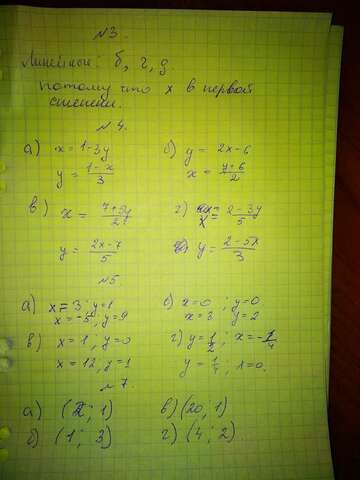 №3.
Линейные: б, г, д.
Потому что x в первой
степени.
№4.
а) x = 1-3y б) y = 2x-6
y = (1-x)/3 x = (y+6)/2
в) x = (7+5y)/2 г) x = (2-3y)/5
y = (2x-7)/5 y = (2-5x)/3
№5.
а) x=3; y=1 б) x=0; y=0
x=-5, y=9 x=3 y=2
в) x=1, y=0 г) y=1/2, x=-1/4
x=12, x=1 y=1/4; x=0.
№7.
а) (2; 1) в) (20; 1)
б) (1; 3) г) (4; 2)